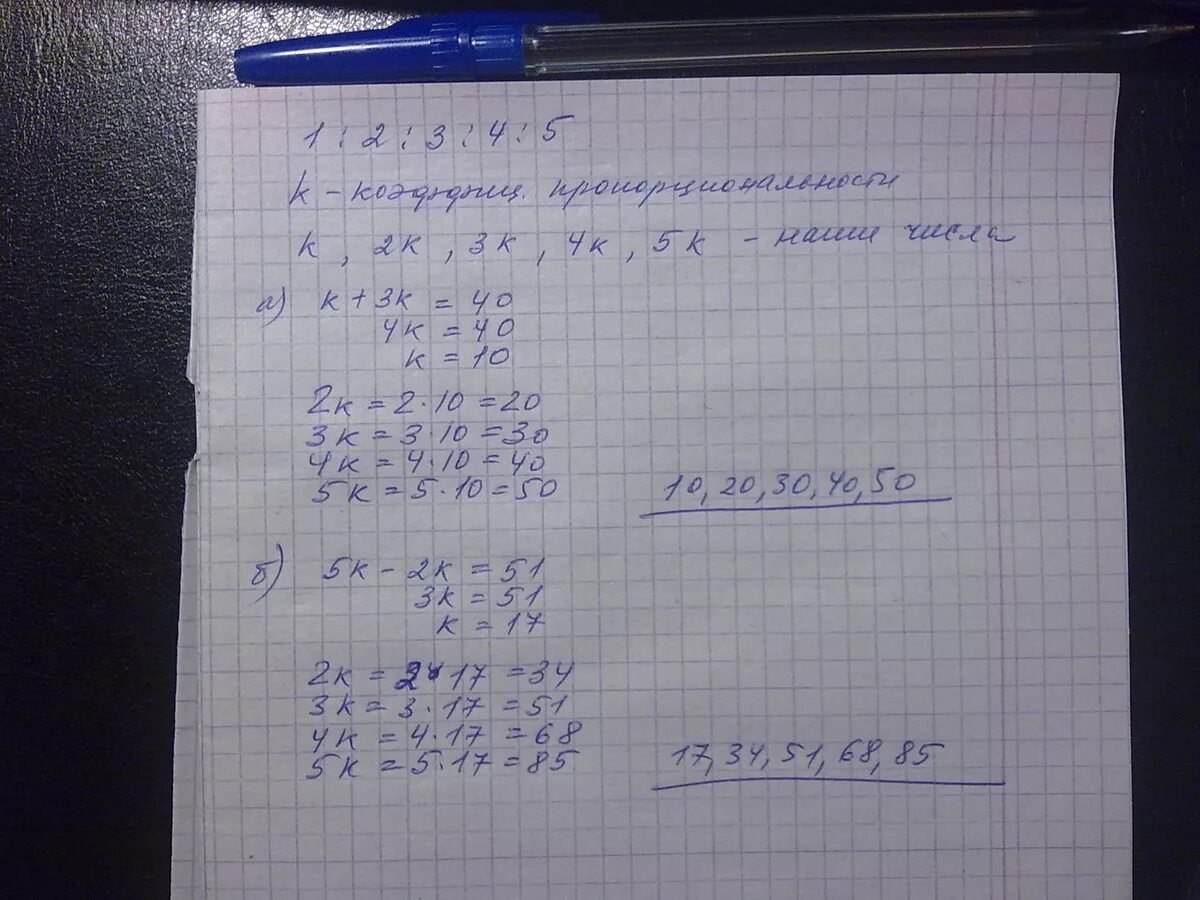 1 : 2 : 3 : 4 : 5
k – коэффиц. пропорциональности
k , 2k , 3k , 4k , 5k – наши числа
а) k + 3k = 40
4k = 40
k = 10
2k = 2 · 10 = 20
3k = 3 · 10 = 30
4k = 4 · 10 = 40
5k = 5 · 10 = 50
10, 20, 30, 40, 50
б) 5k – 2k = 51
3k = 51
k = 17
2k = 2 · 17 = 34
3k = 3 · 17 = 51
4k = 4 · 17 = 68
5k = 5 · 17 = 85
17, 34, 51, 68, 85